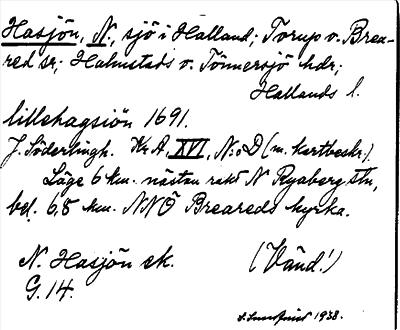 Hasjön, N., sjö i Halland; Torup o. Brea-
red sr; Halmstads o. Tönnersjö hdr;
Hallands l.
lillehagsiön 1691.
J. Söderlingh. Kr. A, XVI, N:o D (m. kartbeskr.).
Läge 6 km. nästan rakt N Ryaberg stn,
bel. 6,5 km. NNÖ Breareds kyrka.
N. Hasjön ek. (Vänd!)
G. 14.
S. Lundquist 1938.